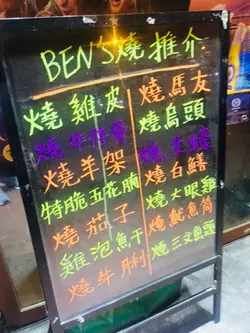 BEN'S燒推介
燒雞皮
燒牛仔骨
燒羊架
特脆五花腩
燒茄子
雞泡魚干
燒牛脷
燒馬友
燒烏頭
燒生蠔
燒白鱔
燒大眼雞
燒魷魚筒
燒三文魚頭